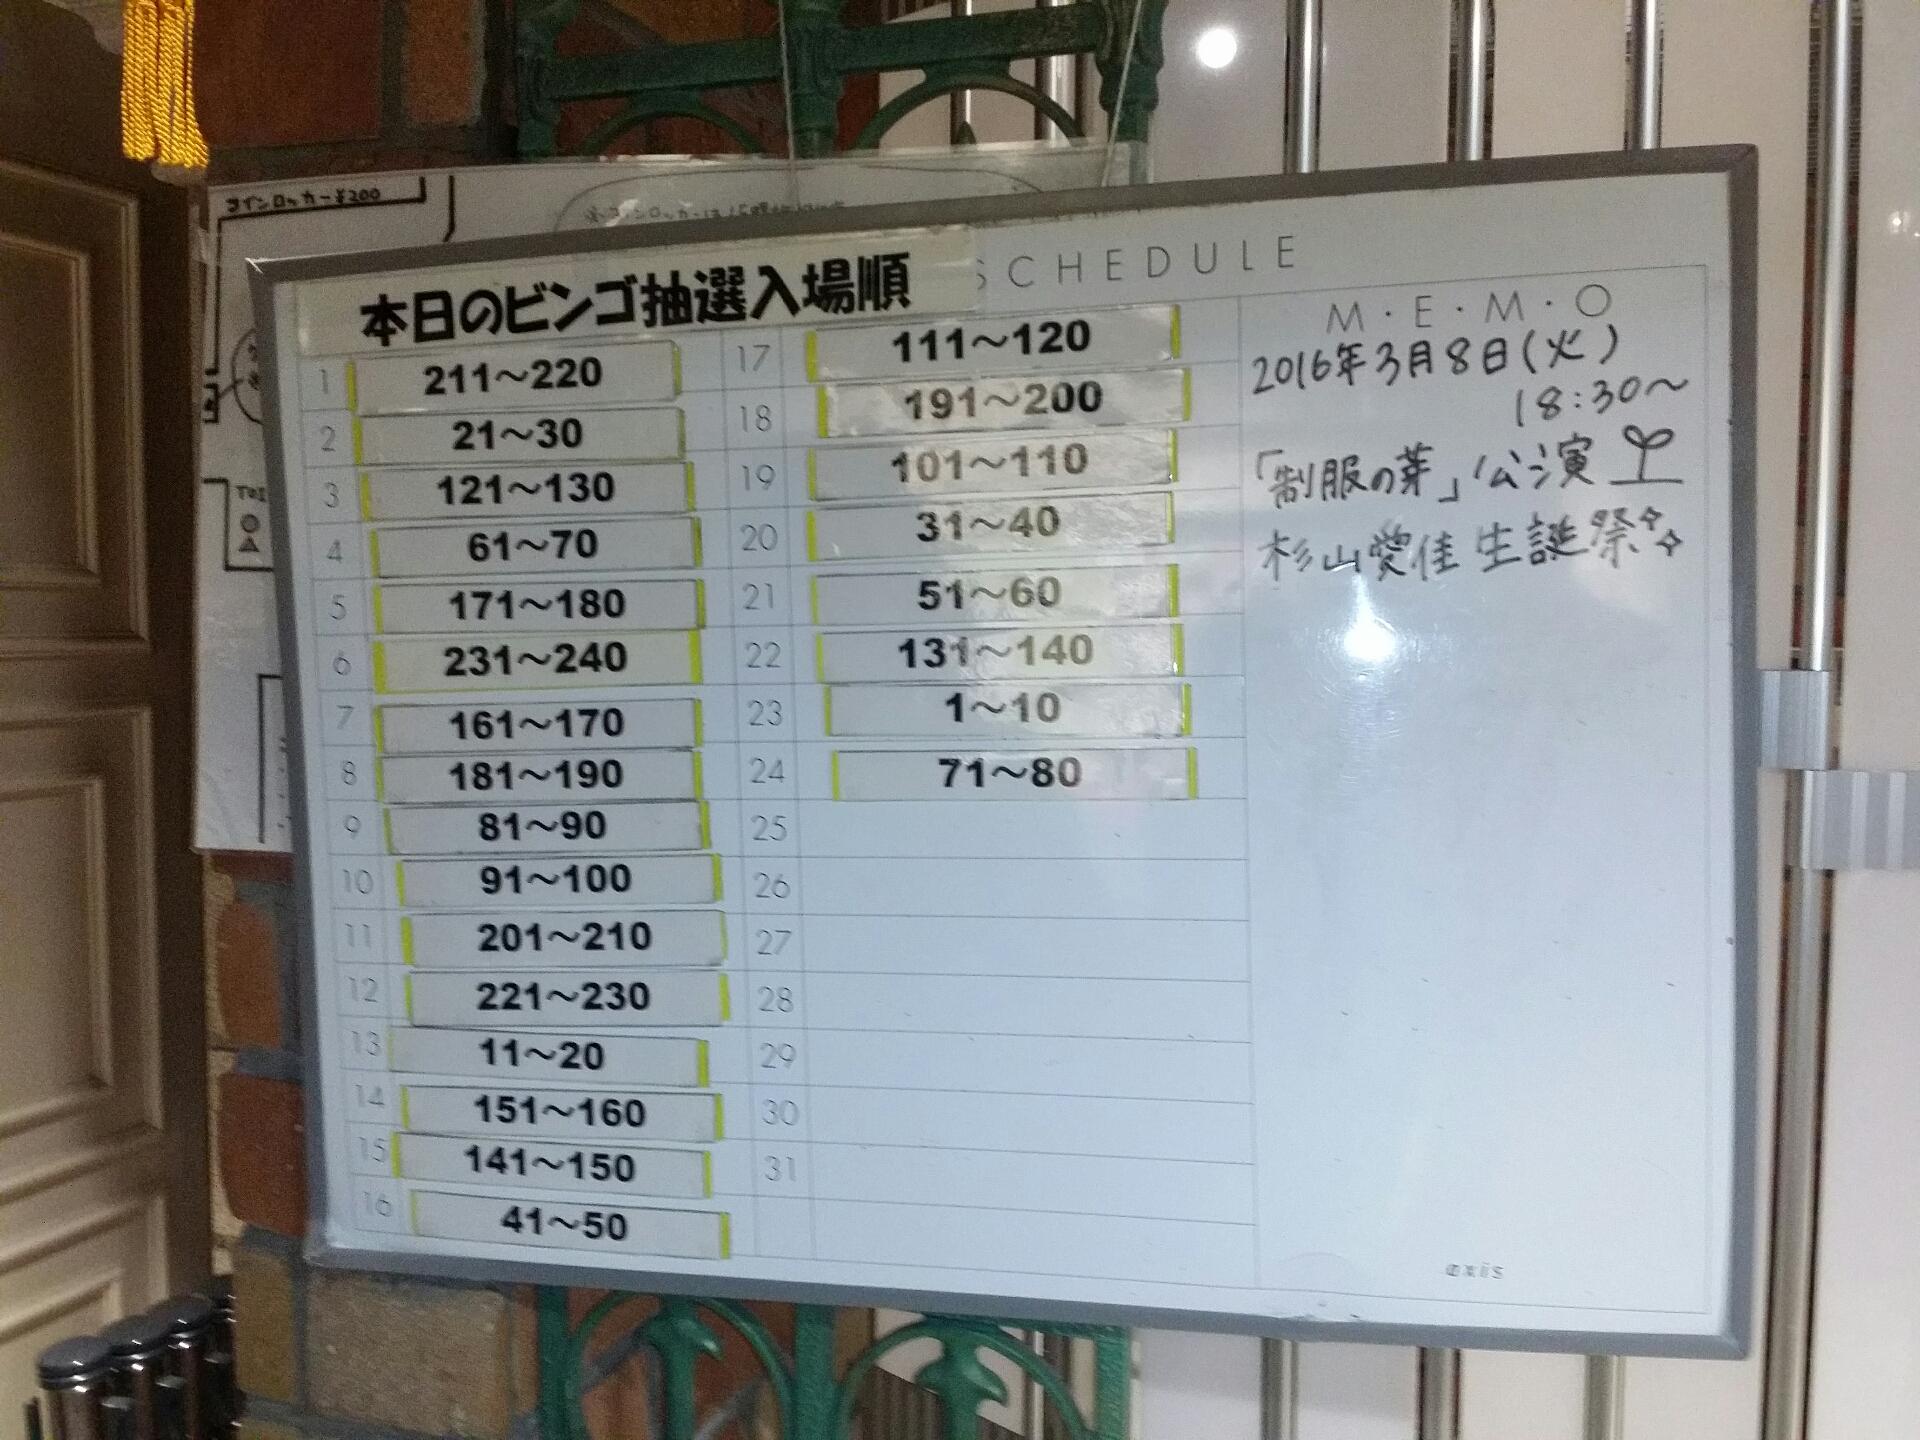 コインロッカー¥200
SCHEDULE
本日のビンゴ抽選入場順
1 211～220
2 21～30
3 121～130
4 61～70
5 171～180
6 231～240
7 161～170
8 181～190
9 81～90
10 91～100
11 201～210
12 221～230
13 11～20
14 151～160
15 141～150
16 41～50
17 111～120
18 191～200
19 101～110
20 31～40
21 51～60
22 131～140
23 1～10
24 71～80
25
26
27
28
29
30
31
M・E・M・O
2016年3月8日(火)
18:30～
「制服の芽」公演
杉山愛佳 生誕祭
axis